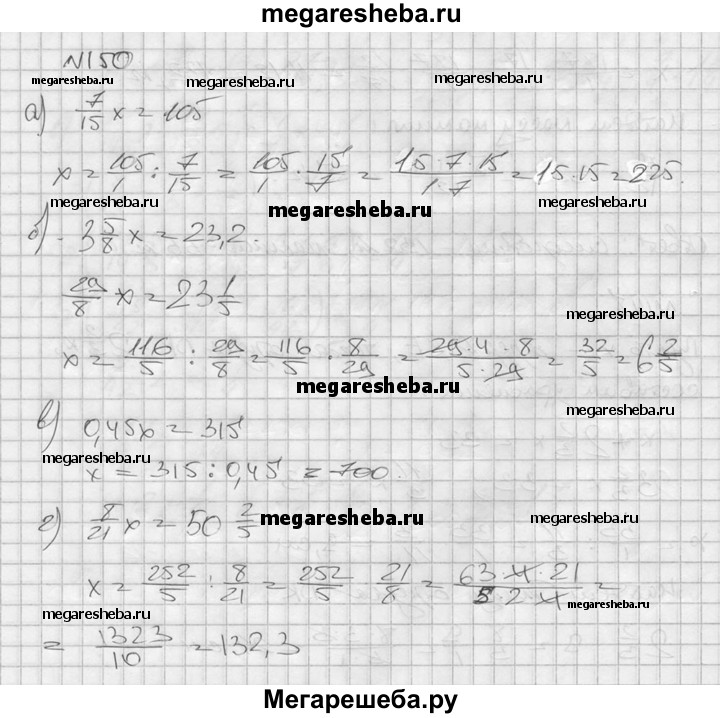 megaresheba.ru
N150
megaresheba.ru megaresheba.ru megaresheba.ru
а) 7/15 x = 105
x = 105/1 : 7/15 = 105/1 · 15/7 = 15·7·15/1·7 = 15·15 = 225.
megaresheba.ru megaresheba.ru
б) 3 5/8 x = 23,2.
29/8 x = 23 1/5
megaresheba.ru
x = 116/5 : 29/8 = 116/5 · 8/29 = 29·4·8/5·29 = 32/5 = 6 2/5
megaresheba.ru
megaresheba.ru
в) 0,45x = 315
megaresheba.ru
x = 315 : 0,45 = 700.
г) 8/21 x = 50 2/5
megaresheba.ru megaresheba.ru
x = 252/5 : 8/21 = 252/5 · 21/8 = 63·4·21/5·2·4 =
megaresheba.ru megaresheba.ru
= 1323/10 = 132,3
Мегарешеба.ру